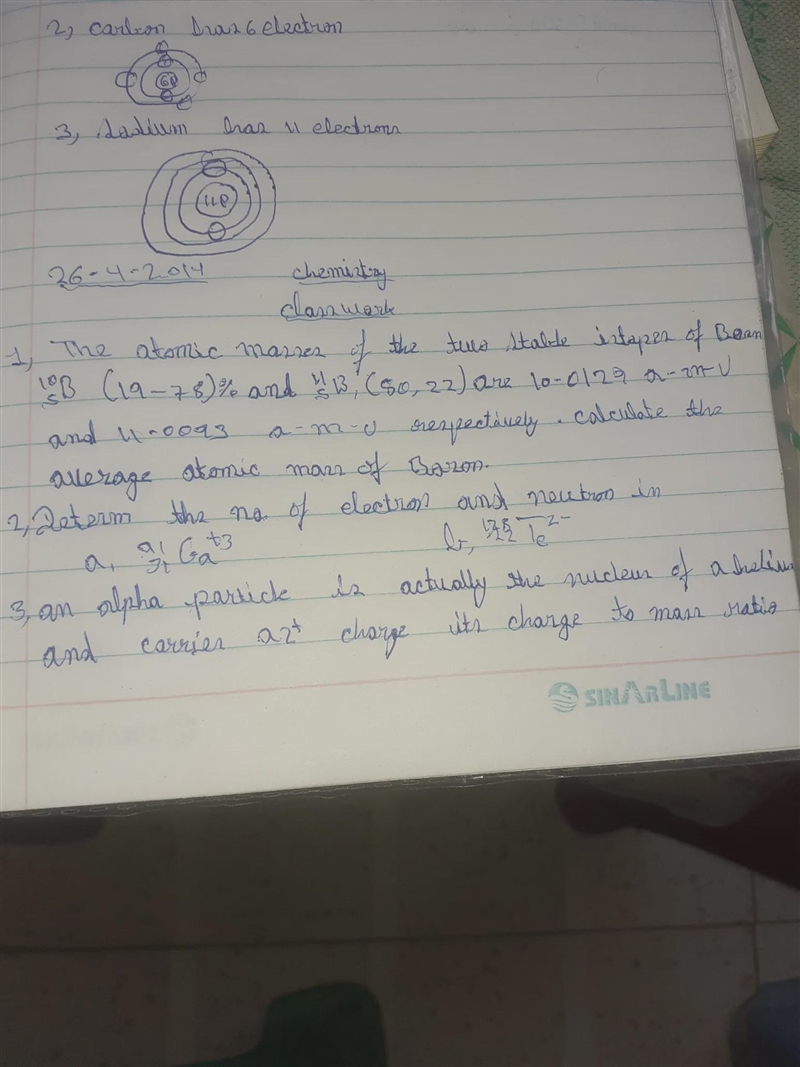 2, carbon has 6 electron
6P
3, Sodium has 11 electrons
11P
26-4-2014 chemistry
classwork
1, The atomic masses of the two stable istopes of Boron
¹⁰₅B (19-78)% and ¹¹₅B, (80,22) are 10-0129 a-m-u
and 11-0093 a-m-u respectively. calculate the
average atomic mass of Boron.
2, Determ the no of electron and neutron in
a, ₃₁Ga⁺³ b, Te²⁻
3, an alpha particle is actually the nucleus of a helium
and carries a 2⁺ charge its charge to mass ratio
SINARLINE